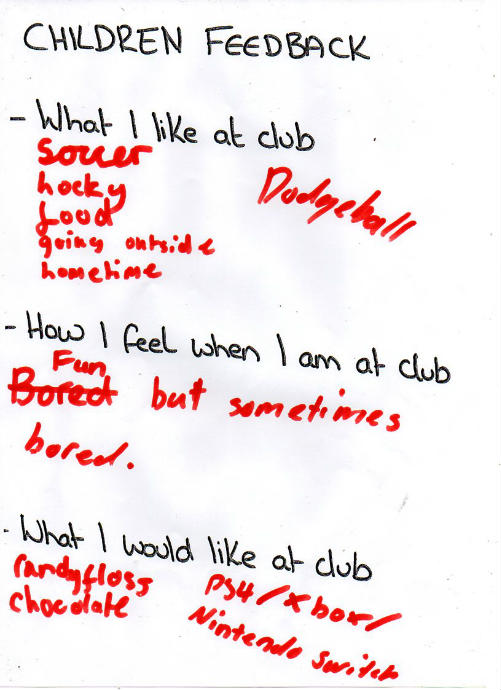 CHILDREN FEEDBACK
- What I like at club
Soccer
hocky
food
going outside
hometime
Dodgeball
- How I feel when I am at club
Fun
Bored but sometimes
bored.
- What I would like at club
Candyfloss
chocolate
PS4/xbox/
Nintendo Switch